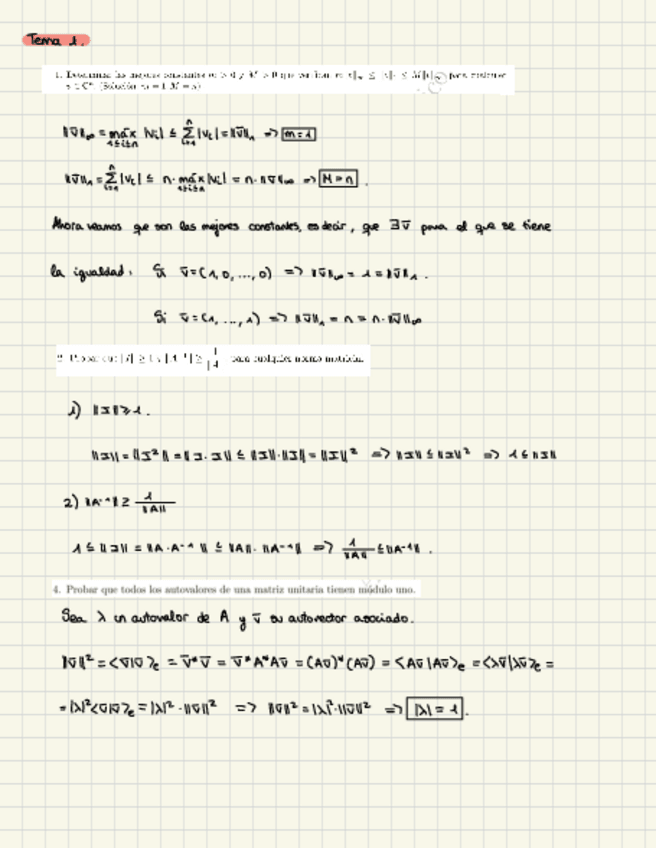 Tema 1.
1. Determinar las mejores constantes m > 0 y M > 0 que verifican m‖v‖∞ ≤ ‖v‖₁ ≤ M‖v‖∞ para cualquier
v ∈ Cⁿ. (Solución: m = 1, M = n)
‖v̄‖∞ = máx 1≤i≤n |vᵢ| ≤ Σⁿᵢ₌₁ |vᵢ| = ‖v̄‖₁ => m=1
‖v̄‖₁ = Σⁿᵢ₌₁ |vᵢ| ≤ n· máx 1≤i≤n |vᵢ| = n·‖v̄‖∞ => M=n .
Ahora veamos que son las mejores constantes, es decir, que ∃v̄ para el que se tiene
la igualdad: Si v̄=(1,0,...,0) => ‖v̄‖∞ = 1 = ‖v̄‖₁ .
Si v̄=(1,...,1) => ‖v̄‖₁ = n = n·‖v̄‖∞
2. Probar que ‖I‖ ≥ 1 y ‖A⁻¹‖ ≥ 1/‖A‖ para cualquier norma matricial.
1) ‖I‖≥1.
‖I‖ = ‖I²‖ = ‖I·I‖ ≤ ‖I‖·‖I‖ = ‖I‖² => ‖I‖ ≤ ‖I‖² => 1 ≤ ‖I‖
2) ‖A⁻¹‖ ≥ 1/‖A‖
1 ≤ ‖I‖ = ‖A·A⁻¹‖ ≤ ‖A‖·‖A⁻¹‖ => 1/‖A‖ ≤ ‖A⁻¹‖ .
4. Probar que todos los autovalores de una matriz unitaria tienen módulo uno.
Sea λ un autovalor de A y v̄ su autovector asociado.
‖v̄‖² = <v̄|v̄>e = v̄*v̄ = v̄*A*Av̄ = (Av̄)*(Av̄) = <Av̄|Av̄>e = <λv̄|λv̄>e =
= |λ|²<v̄|v̄>e = |λ|²·‖v̄‖² => ‖v̄‖² = |λ|²·‖v̄‖² => |λ| = 1 .